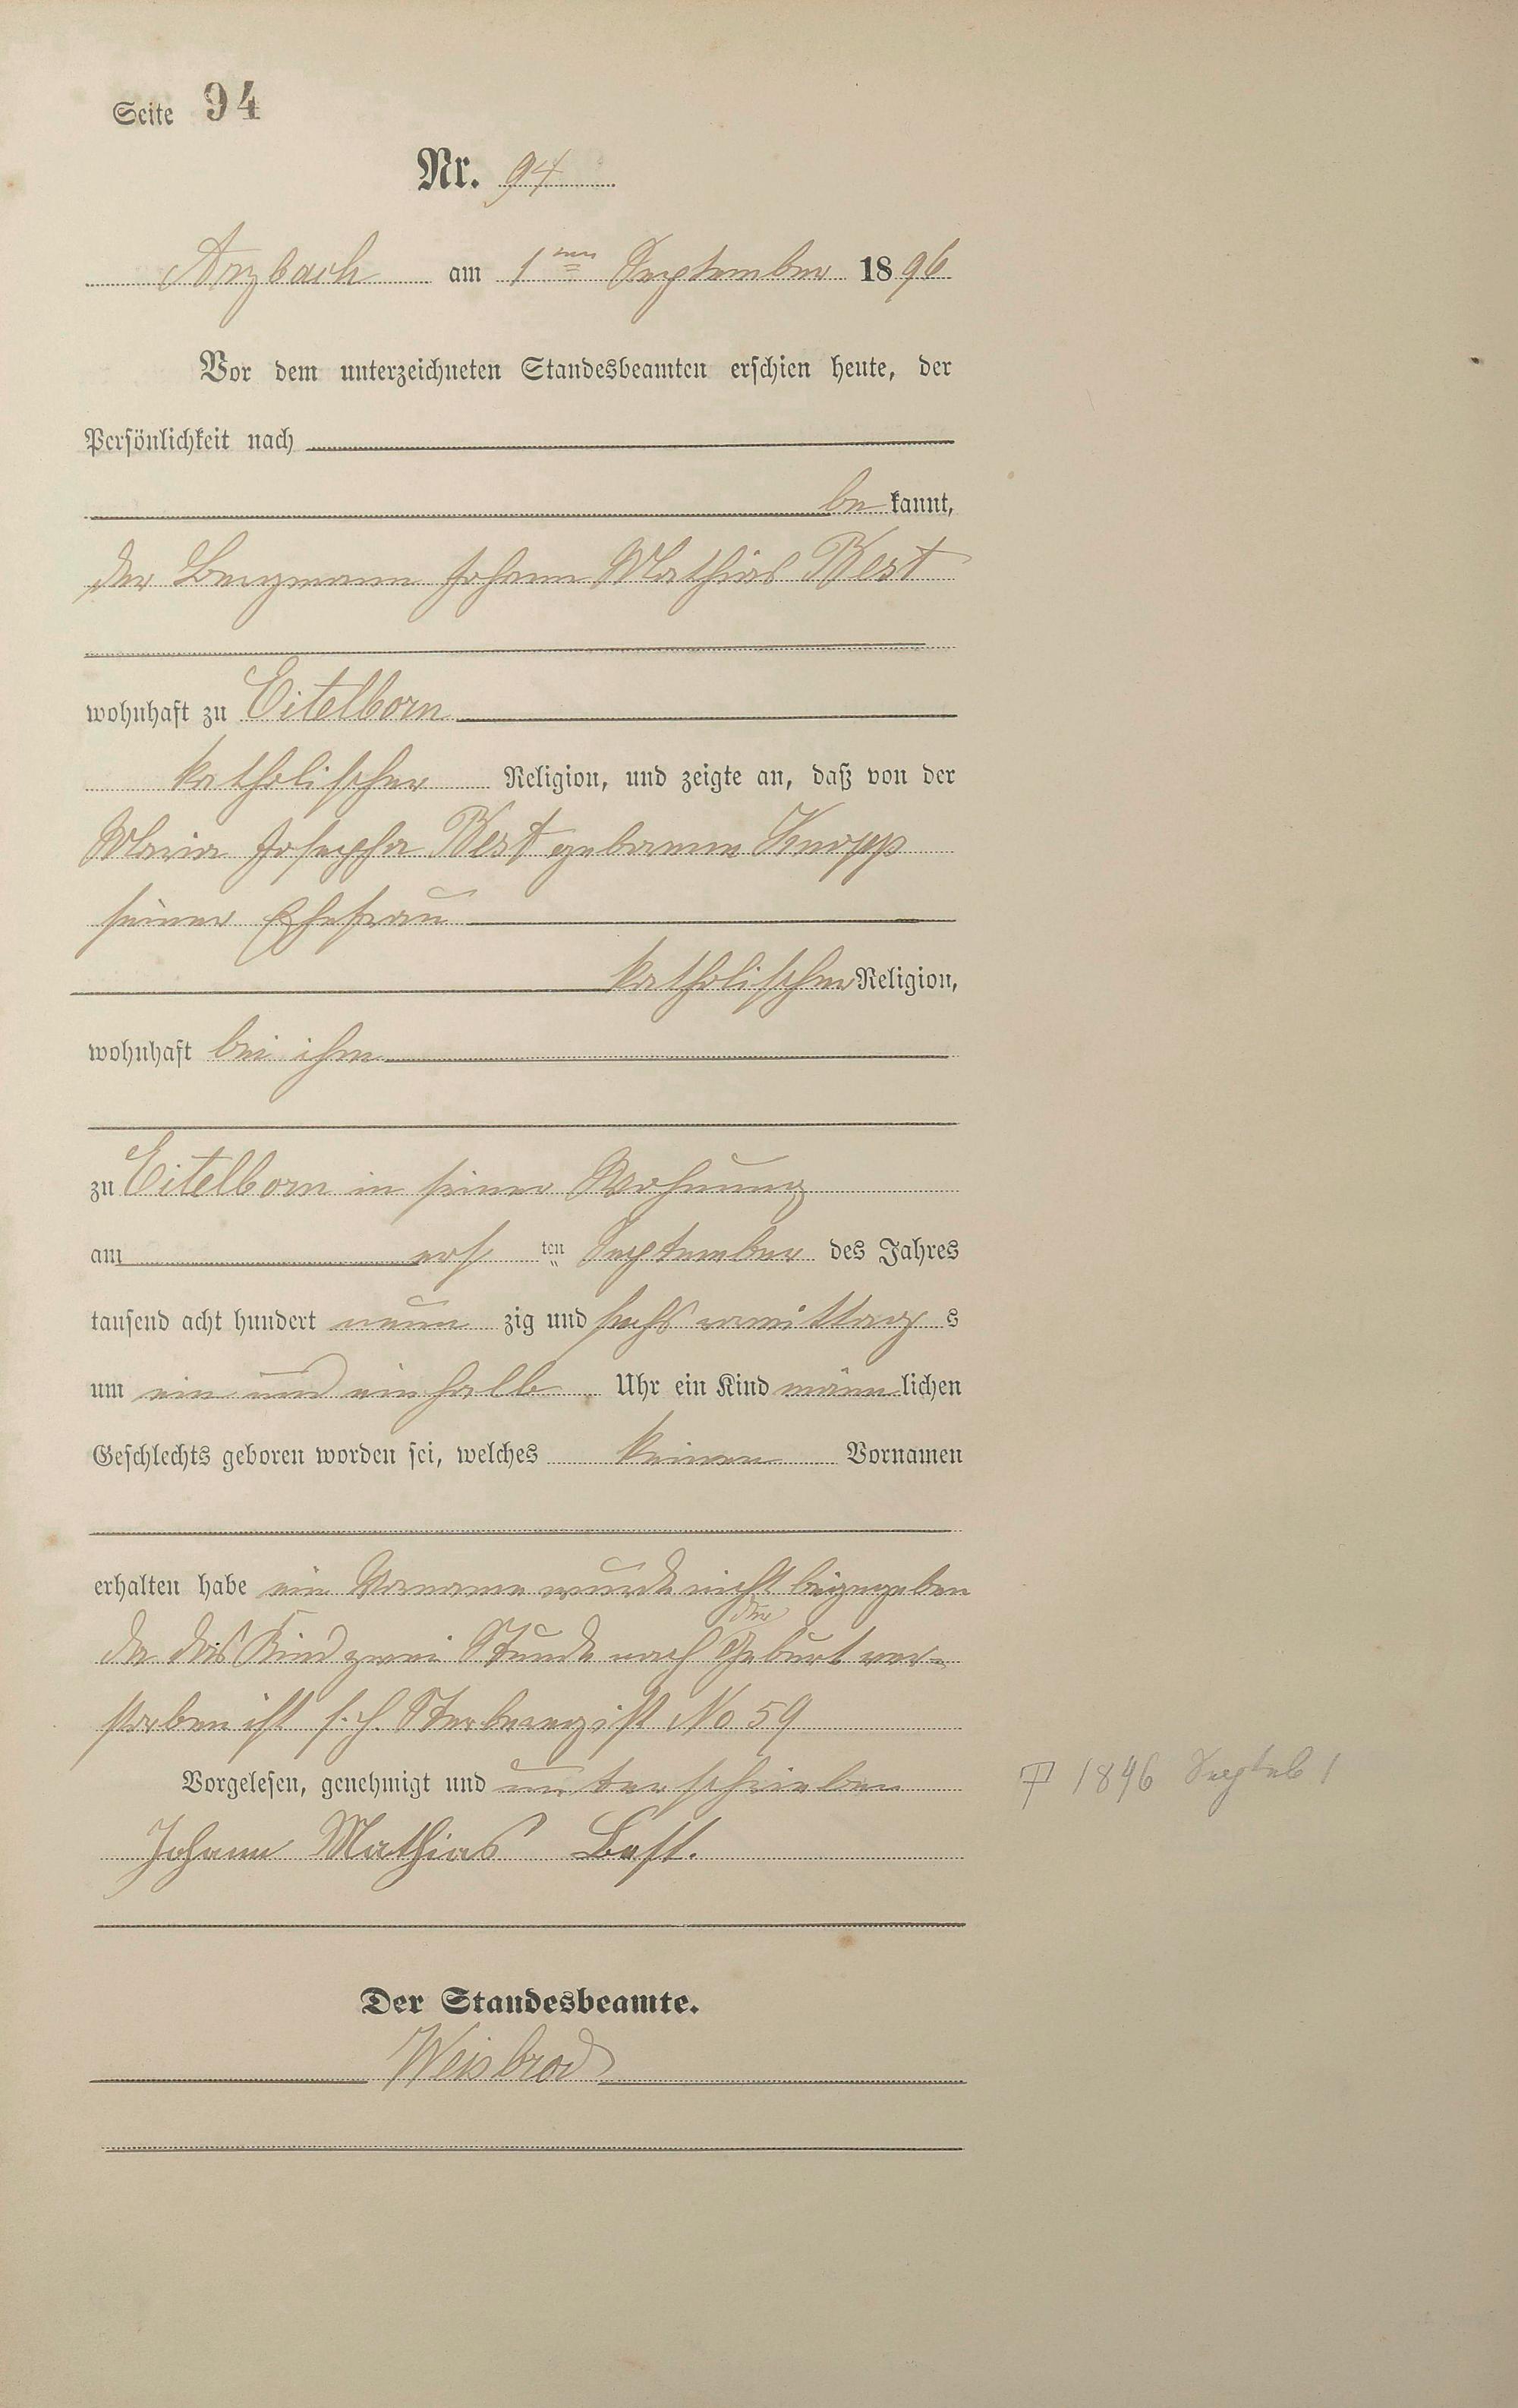 Seite 94
Nr. 94
Arzbach am 1ten September 1896
Vor dem unterzeichneten Standesbeamten erschien heute, der
Persönlichkeit nach
be kannt,
der Bergmann Johann Mathias Best
wohnhaft zu Eitelborn
katholischer Religion, und zeigte an, daß von der
Maria Josepha Best geborenen Knopp
seiner Ehefrau
katholischer Religion,
wohnhaft bei ihm
zu Eitelborn in seiner Wohnung
am ers ten September des Jahres
tausend acht hundert neun zig und sechs vormittag s
um ein und ein halb Uhr ein Kind männ lichen
Geschlechts geboren worden sei, welches keinen Vornamen
erhalten habe ein Vorname wurde nicht beigegeben
da das Kind zwei Stunde nach der Geburt ver-
storben ist s. h. Sterberegist No 59
Vorgelesen, genehmigt und unterschrieben
Johann Mathias Best.
Der Standesbeamte.
Weisbrod
1896 Septeb 1